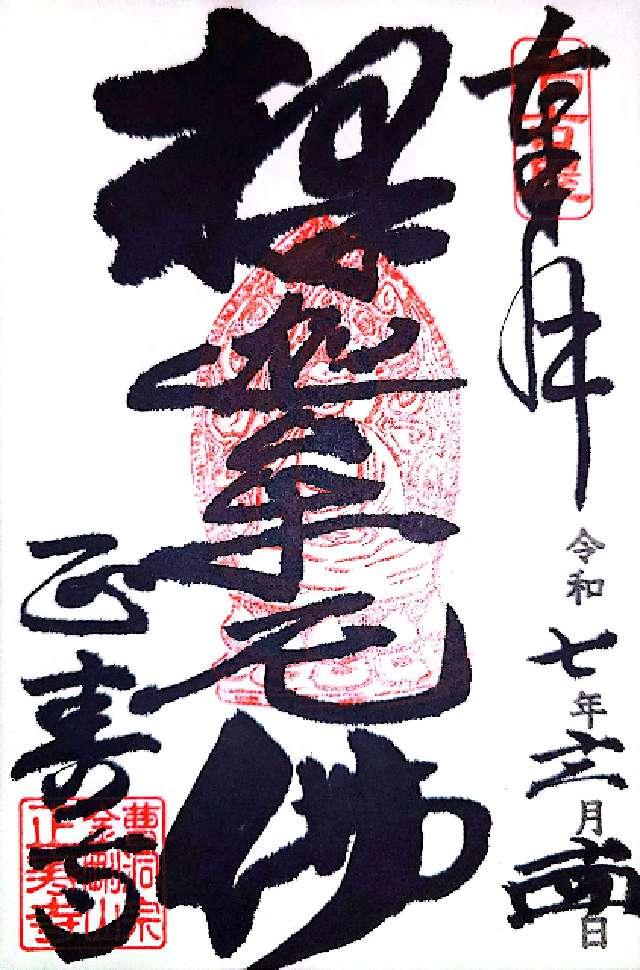 奉拝
令和七年十二月十四日
釋迦牟尼佛
正寿寺
曹洞宗
金剛山
正寿寺